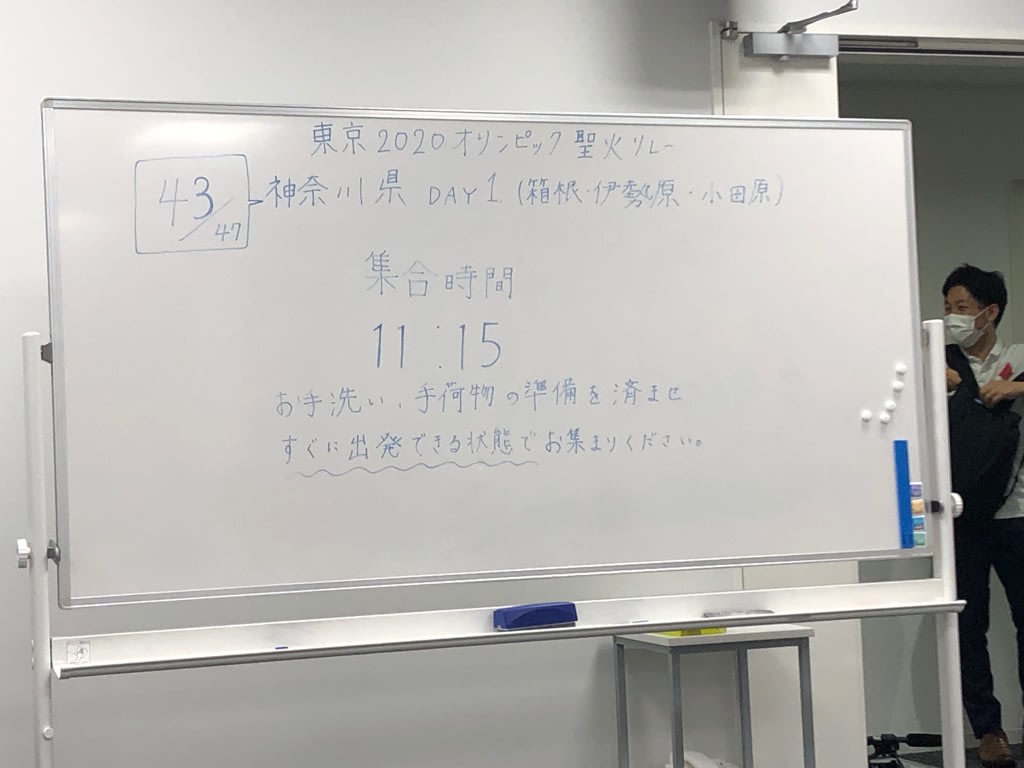 東京2020オリンピック聖火リレー
43/47
神奈川県 DAY1.(箱根・伊勢原・小田原)
集合時間
11:15
お手洗い、手荷物の準備を済ませ
すぐに出発できる状態でお集まりください。